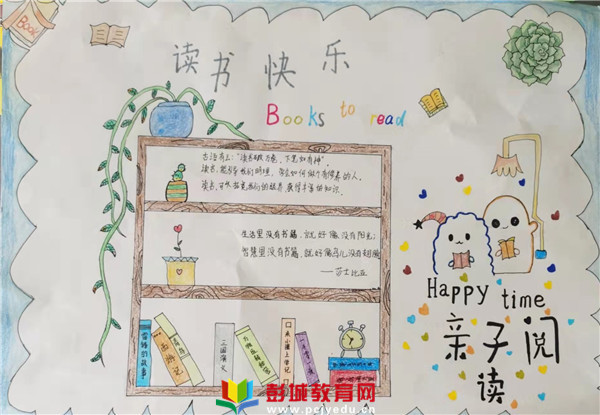 Books
读书快乐
Books to read
古语有云:"读书破万卷,下笔如有神"。
读书,我们的,学会如何做个有修养的人。
读书,可以我们的视野,获得丰富的知识。
生活里没有书籍,就好像没有阳光;
智慧里没有书籍,就好像鸟儿没有翅膀
——莎士比亚
雷锋的故事
西游记
三国演义
Happy time
亲子阅
读
彭城教育网
www.pejyedu.cn